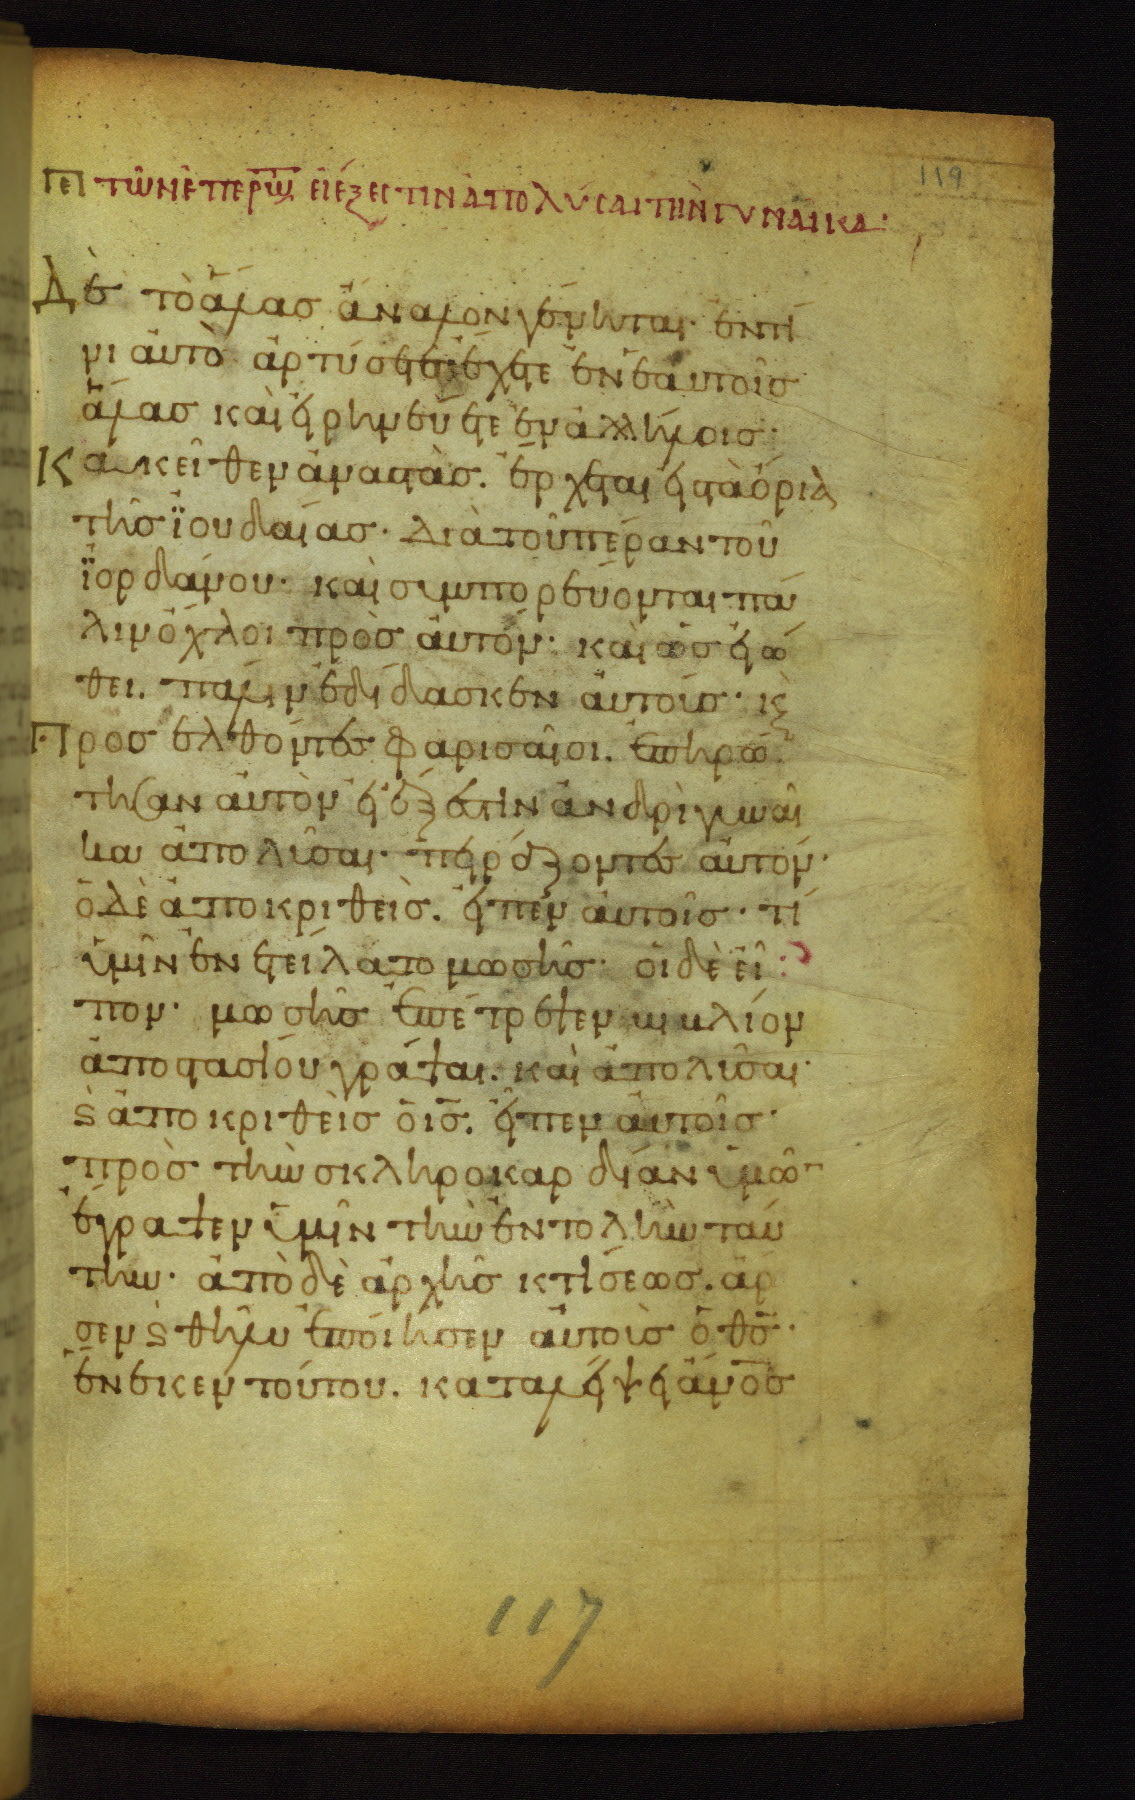 119
Πε τῶν ἐπερωτ εἰ ἔξεστιν ἀπολύσαι τὴν γυναῖκα·
Δὲ τὸ ἅλας ἄναλον γένηται· ἐν τί
νι αὐτὸ ἀρτύσεται ἔχετε ἐν ἑαυτοῖς
ἅλας καὶ εἰρηνεύετε ἐν ἀλλήλοις·
Κακεῖθεν ἀναστὰς. ἔρχεται εἰς τὰ ὅρια
τῆς ϊουδαίας· διὰ τοῦ πέραν τοῦ
ϊορδάνου· καὶ συμπορεύονται πά
λιν ὄχλοι πρὸς αὐτόν· καὶ ὡς εἰώ
θει. πάλιν ἐδίδασκεν αὐτούς· κ
Προσελθόντες φαρισαῖοι. ἐπηρώ
τησαν αὐτὸν εἰ ἔξεστιν ἀνδρὶ γυναῖ
κα ἀπολῦσαι· πειράζοντες αὐτόν·
ὁ δὲ ἀποκριθεὶς. εἶπεν αὐτοῖς· τί
ὑμῖν ἐνετείλατο μωσῆς· οἱ δὲ εἶ
πον· μωσῆς ἐπέτρεψεν βιβλίον
ἀποστασίου γράψαι. καὶ ἀπολῦσαι·
ϗ ἀποκριθεὶς ὁ ις. εἶπεν αὐτοῖς·
πρὸς τὴν σκληροκαρδίαν ὑμῶ
ἔγραψεν ὑμῖν τὴν ἐντολὴν ταύ
την· ἀπὸ δὲ ἀρχῆς κτίσεως. ἄρ
σεν ϗ θῆλυ ἐποίησεν αὐτοὺς ὁ θς·
ἕνεκεν τούτου. καταλείψει ἄνος
117